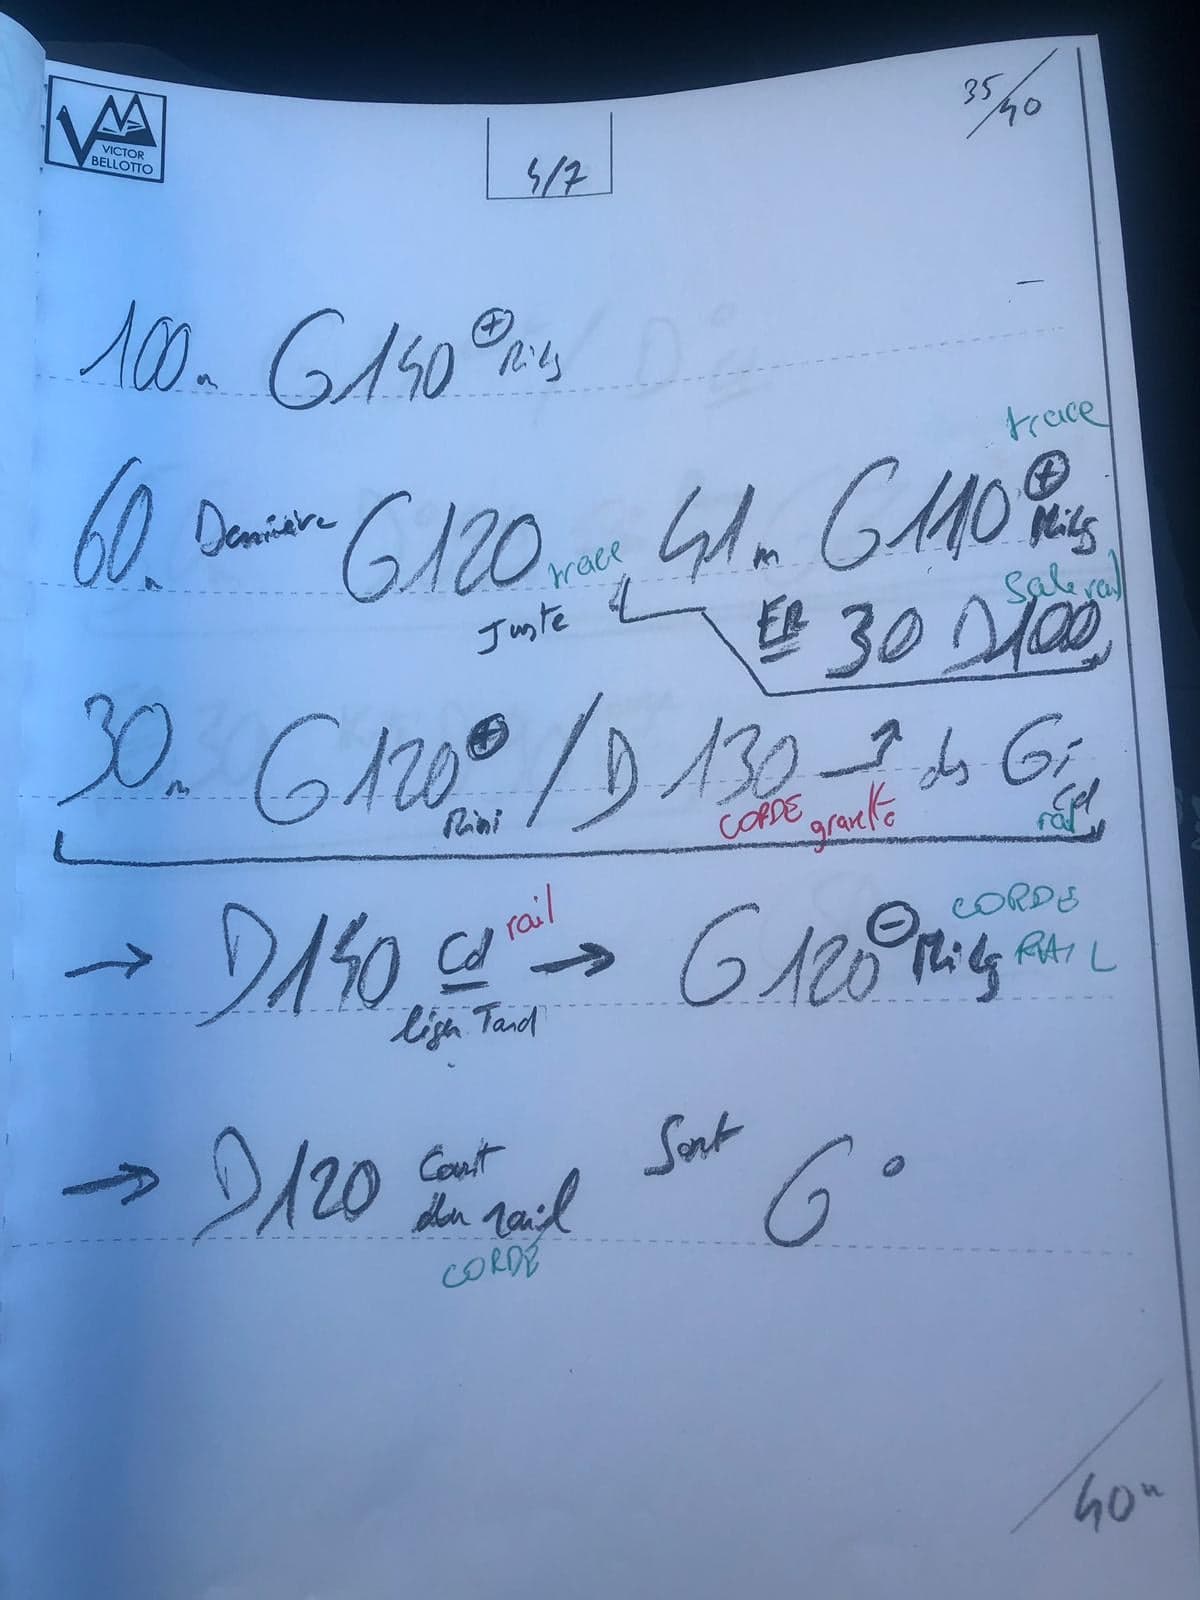 VICTOR
BELLOTTO
4/7
35/40
100m G140 ⊕
trace
60m Derrière G120 trace 41m G110 ⊕
Juste
Sale rail
ER 30 D100
30m G120 ⊕ Mini / D 130 → ds G
CORDE gravette Cd rail
→ D140 Cd rail → G120 ⊖ CORDE RAIL
lign Tard
→ D120 Court du rail Sort G°
CORDE
/40m